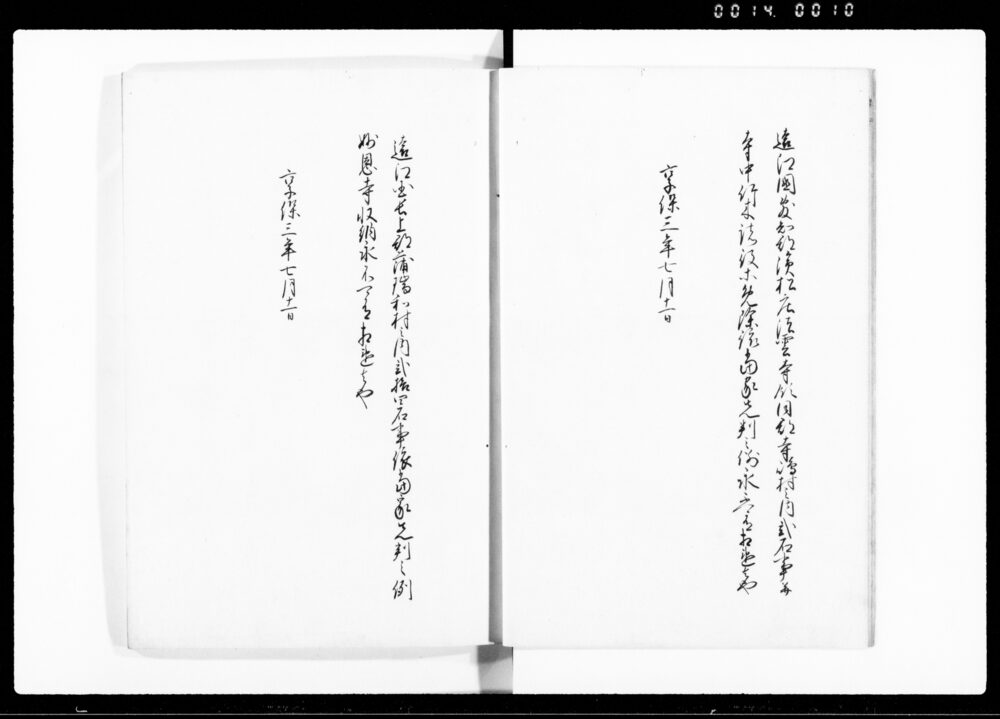 0014 0010
遠江國敷知郡濱松庄法雲寺領同郡寺嶋村之内弐石事并
寺中竹木諸役等免除依當家先判之例永不可有相違者也
享保三年七月十一日
遠江國長上郡蒲瑞和村之内弐拾四石事依當家先判之例
妙恩寺収納永不可有相違者也
享保三年七月十一日